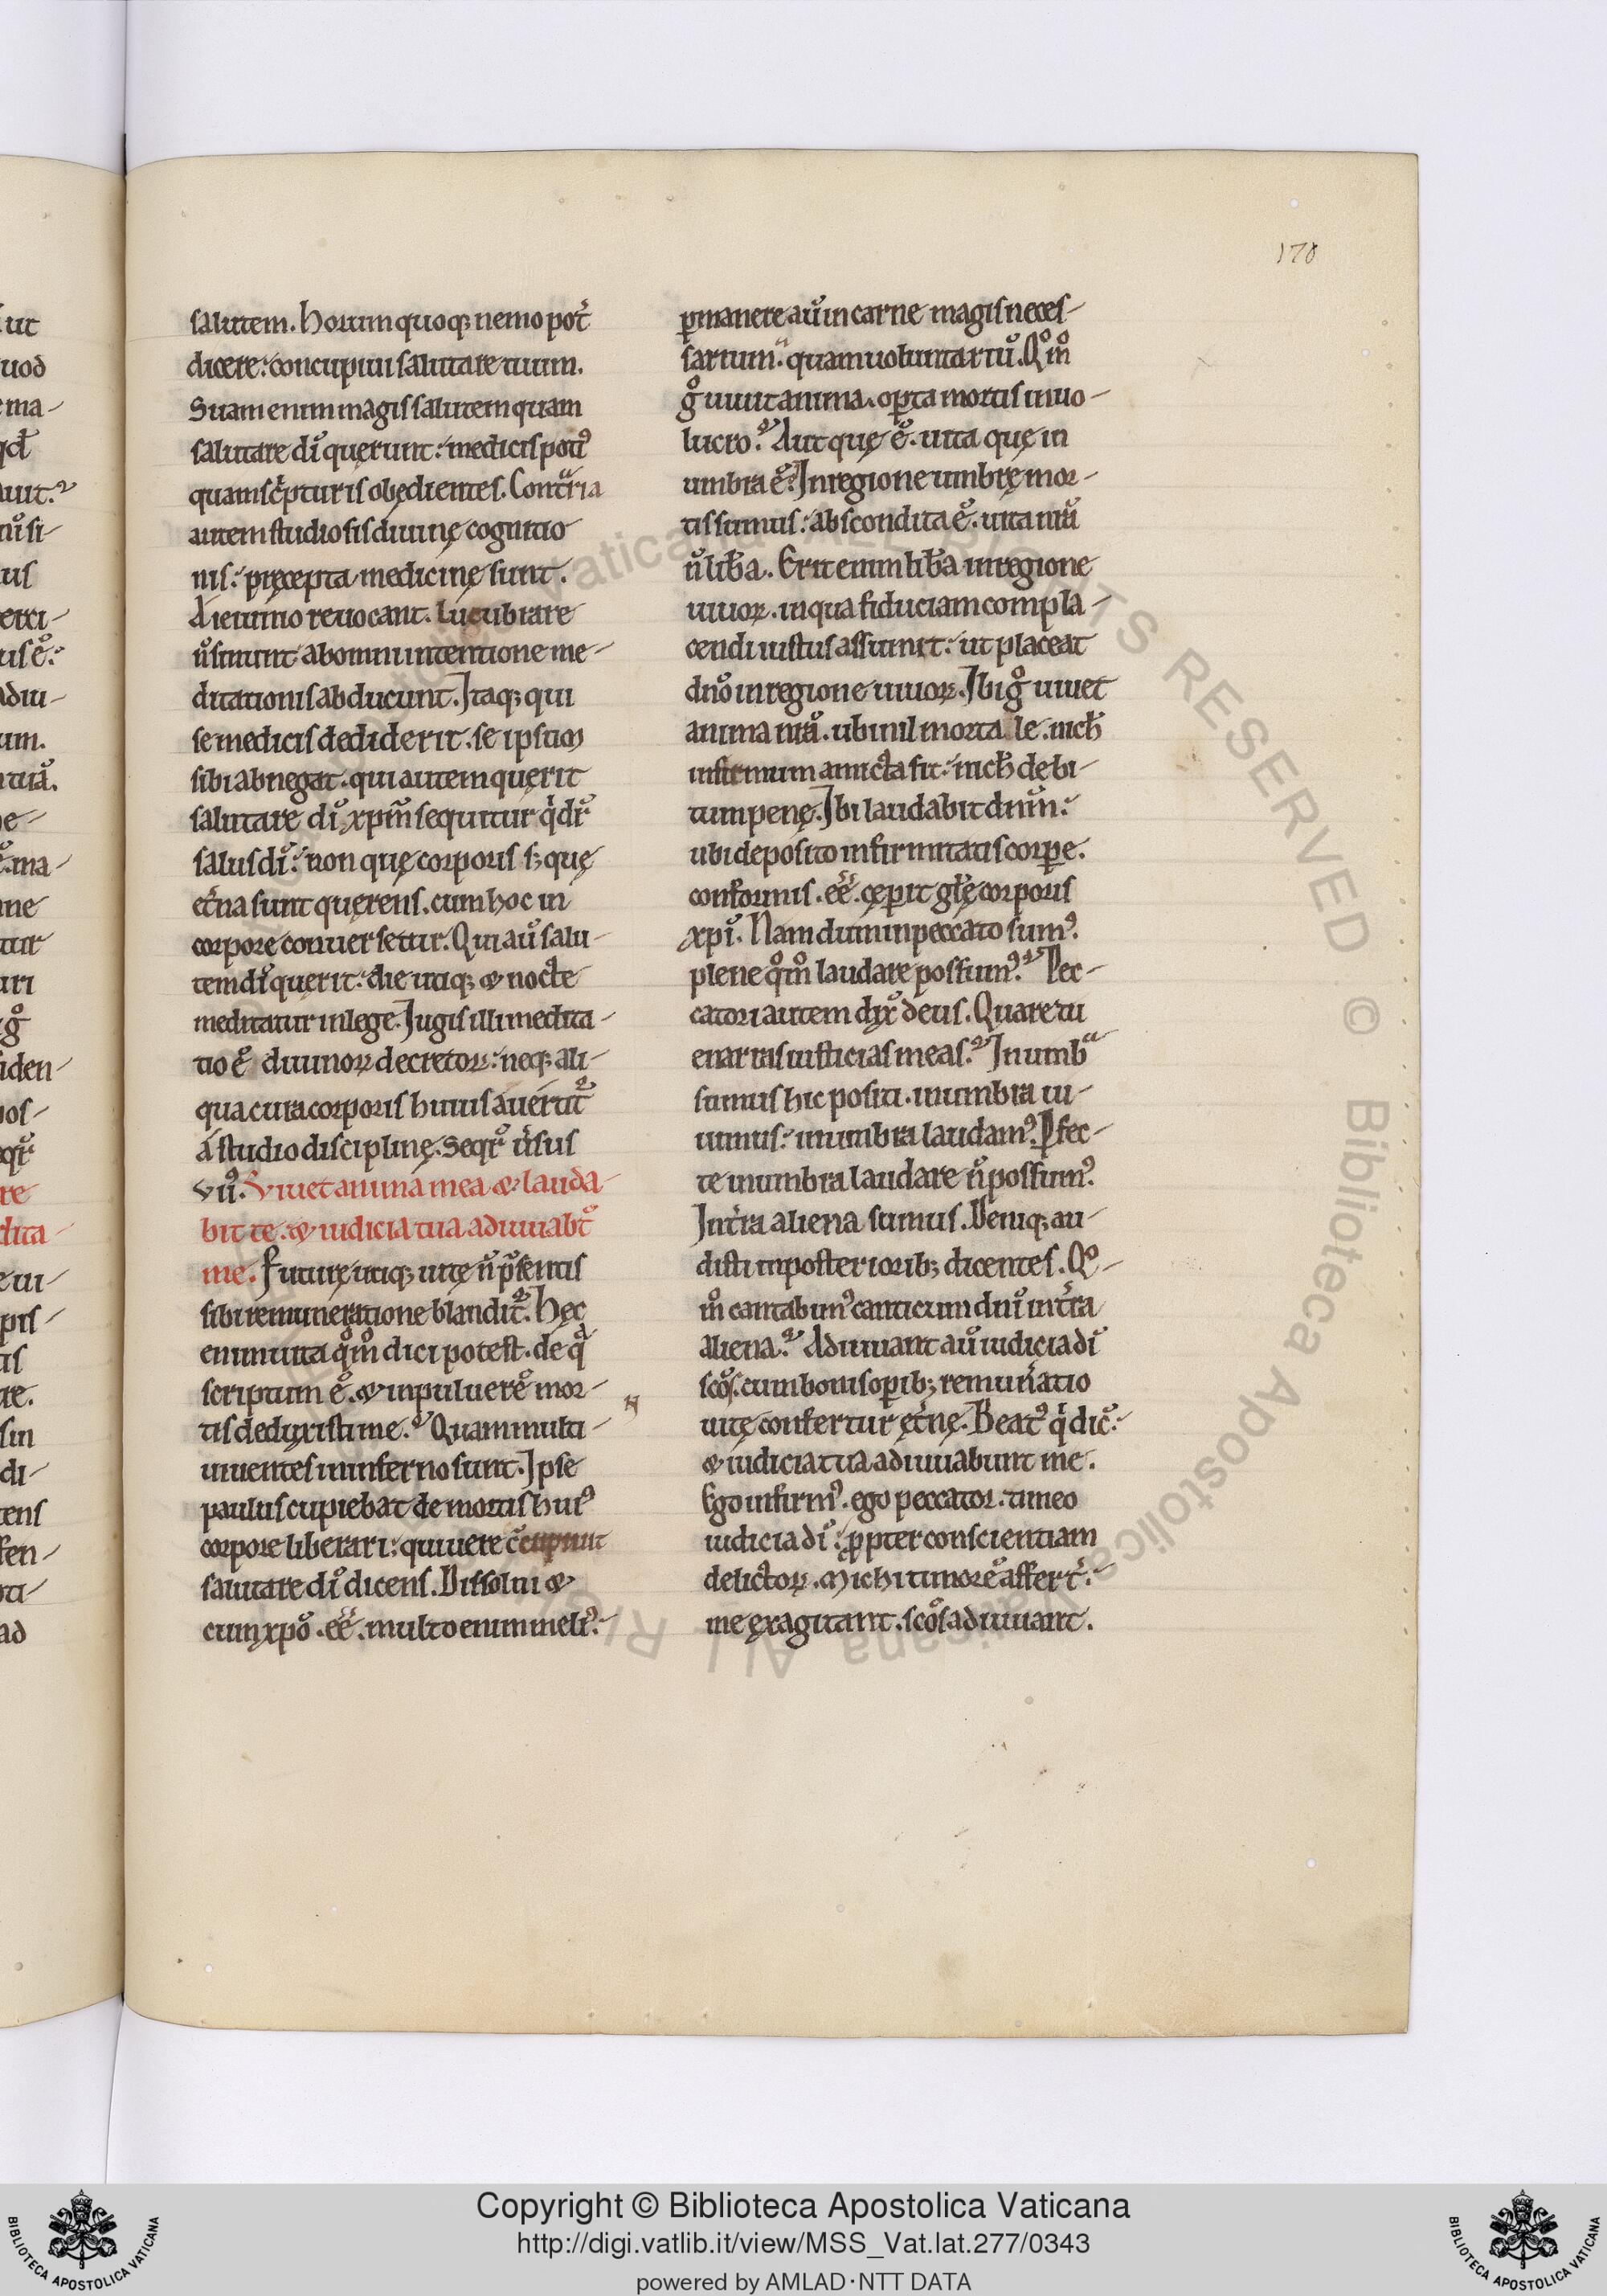 170
salutem. Horum quoq; nemo pot̄
dicere: concupiui salutare tuum.
Suam enim magis salutem quam
salutare dī quęrunt: medicis poti᷒
quam sc̄pturis obędientes. Cont̄ria
autem studiosis diuinę cognitio
nis: pręcepta medicinę sunt.
A ieiunio reuocant. lucubrare
n̄ sinunt ab omni intentione me-
ditationis abducunt. Itaq; qui
se medicis dediderit. se ipsum
sibi abnegat. qui autem quęrit
salutare dī xpm̄ sequitur q̄ dr̄
salus dī: non quę corporis s; quę
et̄na sunt quęrens. cum hoc in
corpore conuersetur. Qui aū salu-
tem dī querit: die utiq; & nocte
meditatur in lege. Jugis illi medita-
tio ē diuinoꝝ decretoꝝ: neq; ali-
qua cura corporis huius auertit᷒
a studio disciplinę. Seqr̄ ūsus
Vn᷒. Viuet anima mea & lauda-
bit te. & iudicia tua adiuuabt̄
me. Futurę utiq; uitę n̄ p̄sentis
sibi remuneratione blandit᷒. Hęc
enim uita q̄m̄ dici potest. de q̄
scriptum ē. & in puluerē mor-
tis deduxisti me. Quam multi-
uiuentes in inferno sunt. Ipse
paulus cupiebat de mortis hui᷒
corpore liberari: qui uere ccupiuit
salutare dī dicens. Dissolui &
cum xpō. eē. multo enim meli᷒:
ꝑmanere aū in carne magis neces-
sarium. quam uoluntariū. Qm̄
ḡ uiuit anima. oꝑta mortis inuo-
lucro? Aut quę ē. uita quę in
umbra ē? In regione umbrę mor-
tis sumus: abscondita ē. uita nr̄a
n̄ lib̄a. Erit enim lib̄a in regione
uiuoꝝ. in qua fiduciam compla-
cendi iustus assumit: ut placeat
dnō in regione uiuoꝝ. Ibi ḡ uiuet
anima nr̄a. ubi nil mortale. nich̄
infirmum amicta sit: nich̄ debi-
tum penę. Ibi laudabit dnm̄:
ubi deposito infirmitatis corꝑe.
conformis. eē. cępit gl̄ę corporis
xpī. Nam dum in peccato sum᷒.
plene q̄m̄ laudare possum᷒? Pec-
catori autem dix̄ deus. Quare tu
enarras iusticias meas? In umbᵃ
sumus hic positi. in umbra ui-
uimus: in umbra laudam᷒. Ꝑfec-
te in umbra laudare n̄ possum᷒.
In t̄ra aliena sumus. Deniq; au-
disti in posteriorib; dicentes. Qō-
m̄ cantabim᷒ canticum dnī in t̄ra
aliena? Adiuuant aū iudicia dī
scōs. cum bonis oꝑib; remun̄atio
uitę confertur ęt̄nę. Beat᷒ q̄ dic̄:
& iudicia tua adiuuabunt me.
Ego infirm᷒. ego peccator. timeo
iudicia dī: ꝓpter conscientiam
delictoꝝ. Michi timorē affert̄:
me exagitant. scōs adiuuant.
Copyright © Biblioteca Apostolica Vaticana
http://digi.vatlib.it/view/MSS_Vat.lat.277/0343
powered by AMLAD·NTT DATA
BIBLIOTECA APOSTOLICA VATICANA
BIBLIOTECA APOSTOLICA VATICANA